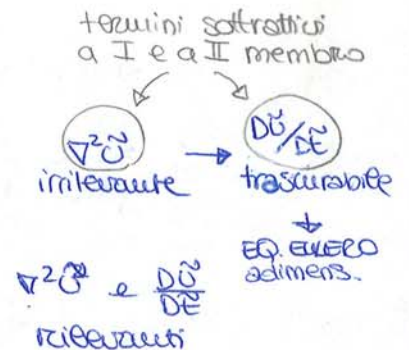 termini sottrattici
a I e a II membro
∇²Ũ → DŨ/Dt̃
irrilevante trascurabile
↓
EQ. EULERO
adimens.
∇²Ũ e DŨ/Dt̃
rilevanti